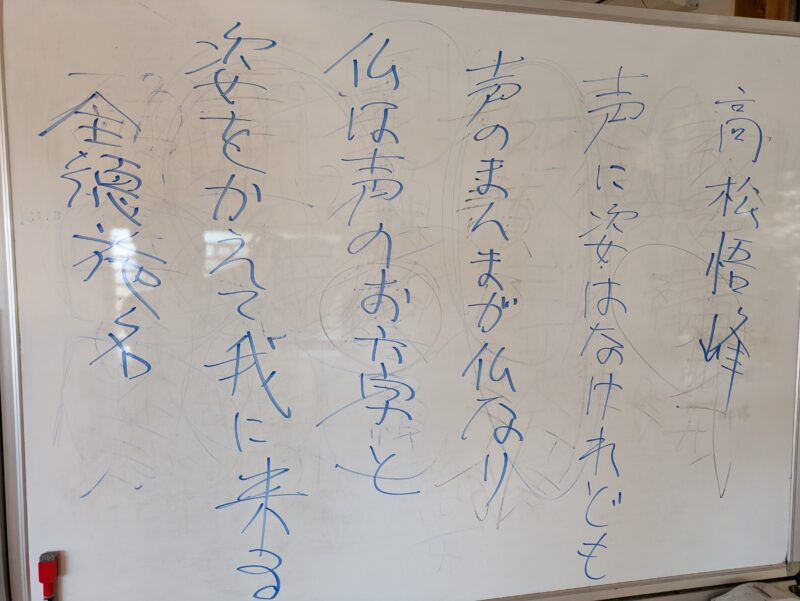 高松悟峰
声に姿はなけれども
声のまんまが仏なり
仏は声のお六字と
姿をかえて我に来る
全徳施名